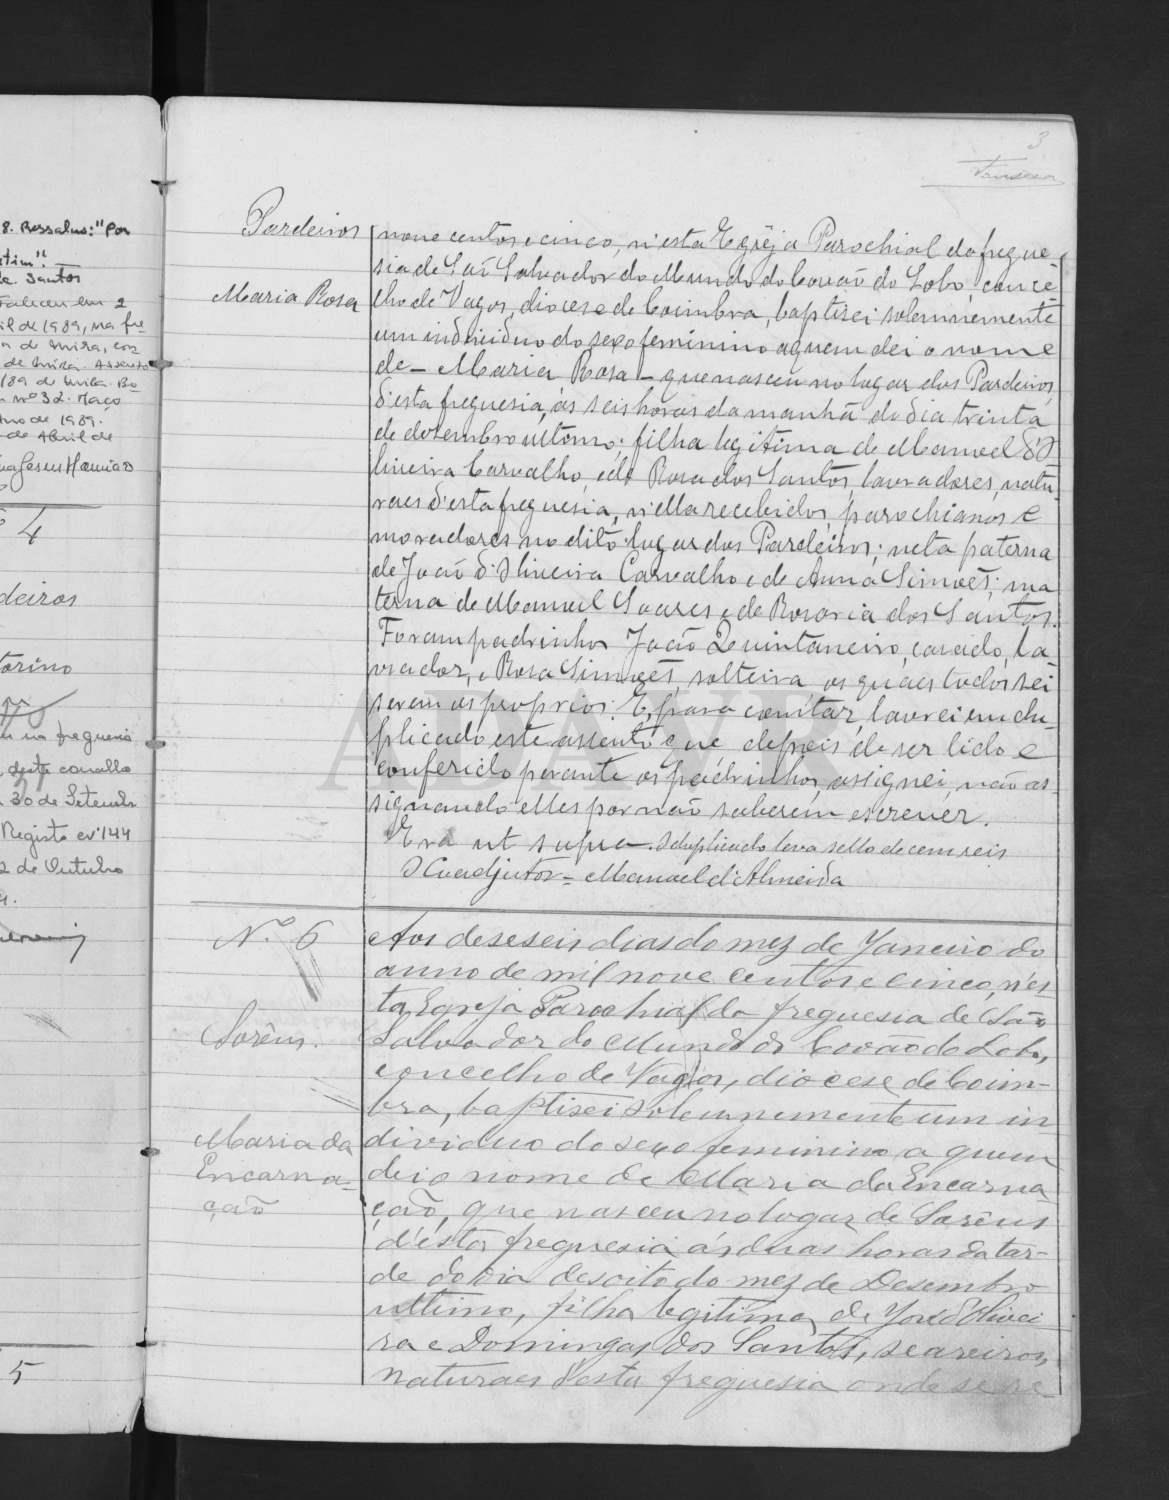 8. Ressalvo: "Por
Santos
Faleceu em 2
il de 1989, na fre
a de Mira, con
de Mira. Assento
/89 de Mira. Bo
nº 32. Março
de 1989.
de Abril de
4
deiros
torino
na freguesia
deste concelho
30 de Setembro
Registo nº 144
2 de Outubro
5
3
Fonseca
Pardeiros
Maria Rosa
nove centos e cinco, n'esta Egrêja Parochial da fregue-
sia de São Salvador do Mundo do Covão do Lobo, conce-
lho de Vagos, diocese de Coimbra, baptisei solemnemente
um individuo do sexo feminino a quem dei o nome
de - Maria Rosa - que nasceu no lugar dos Pardeiros,
d'esta freguesia, ás seis horas da manhã do dia trinta
de dezembro ultimo; filha legitima de Manoel d'O
liveira Carvalho, e de Rosa dos Santos, lavradores, natu-
raes d'esta freguesia, n'ella recebidos, parochianos e
moradores no dito lugar dos Pardeiros; neta paterna
de João d'Oliveira Carvalho e de Anna Simões; ma
terna de Manuel Soares e de Rosaria dos Santos.
Foram padrinhos João Quintaneiro, casado, la
vrador, e Rosa Simões, solteira, os quaes todos sei
serem os proprios. E, para constar, lavrei em du
plicado este assento que, depois de ser lido e
conferido perante os padrinhos, assignei, não as-
signando elles por não saberem escrever.
Era ut supra. O duplicado leva sello de cem reis
O Coadjutor = Manuel d'Almeida
N.º 6
Sorêns.
Maria da
Encarna-
ção
Aos deseseis dias do mez de Janeiro do
anno de mil nove centos e cinco, n'es
ta Egreja Parochial da freguesia de São
Salvador do Mundo do Covao do Lobo,
concelho de Vagos, diocese de Coim-
bra, baptisei solemnemente um in
dividuo do sexo feminino a quem
dei o nome de Maria da Encarna
ção, que nasceu no logar de Sorêns
d'ésta freguesia ás duas horas da tar-
de do dia desoito do mez de Desembro
ultimo, filha legitima de José d'Olivei
ra e Domingas dos Santos, seareiros,
naturaes d'esta freguesia onde se re